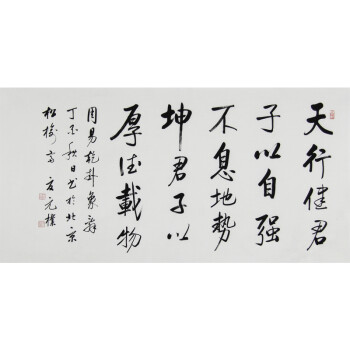 天行健君
子以自强
不息地勢
坤君子以
厚德載物
周易乾卦象辭
丁 秋日书於北京
松 元